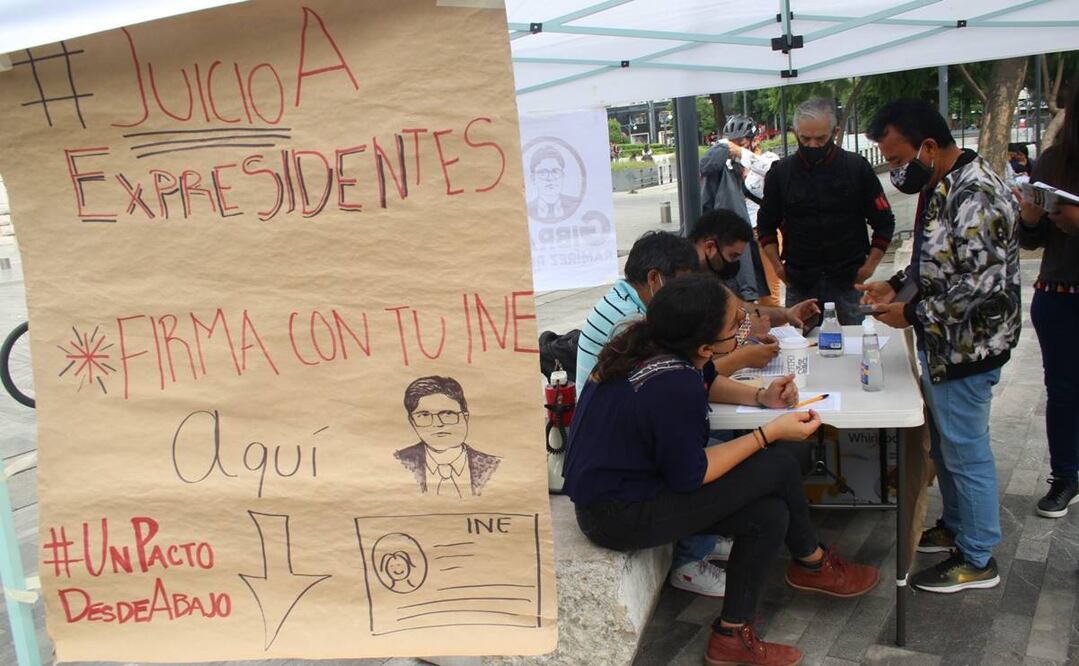 # JUICIO A
EXPRESIDENTES
FIRMA CON TU INE
Aquí
#UNPACTO
DESDEABAJO
INE
RAMIREZ